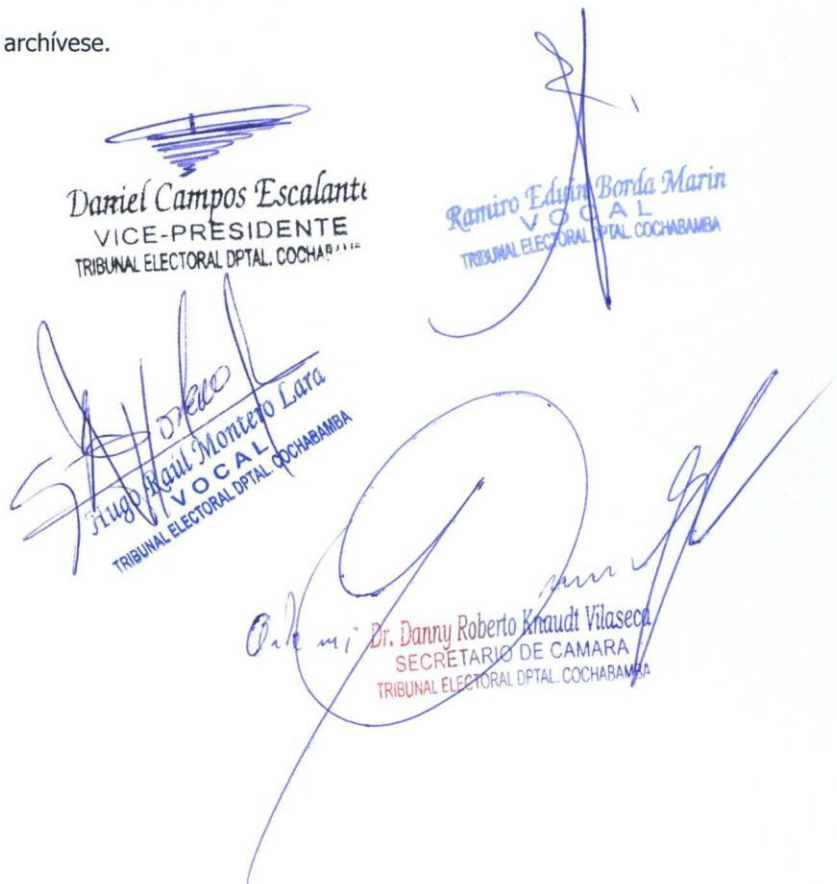 archívese.
Daniel Campos Escalante
VICE-PRESIDENTE
TRIBUNAL ELECTORAL DPTAL. COCHABAMBA
Ramiro Edwin Borda Marin
VOCAL
TRIBUNAL ELECTORAL DPTAL. COCHABAMBA
Hugo Raúl Montero Lara
VOCAL
TRIBUNAL ELECTORAL DPTAL. COCHABAMBA
Dr. Danny Roberto Knaudt Vilaseca
SECRETARIO DE CAMARA
TRIBUNAL ELECTORAL DPTAL. COCHABAMBA